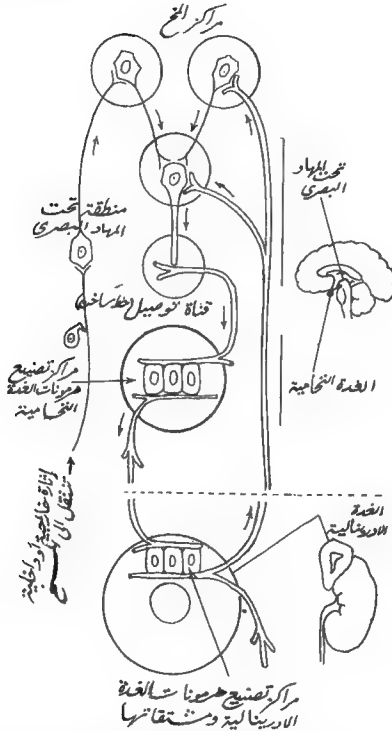 مراكز المخ
تحت المهاد
البصري
منطقة تحت
المهاد البصري
قناة توصيل (خط ساخن)
مراكز تصنيع
هرمونات الغدة
النخامية
الغدة النخامية
إثارة خارجية أو داخلية
تنتقل الى المخ
الغدة
الادرينالية
مراكز تصنيع هرمونات الغدة
الادرينالية ومشتقاتها